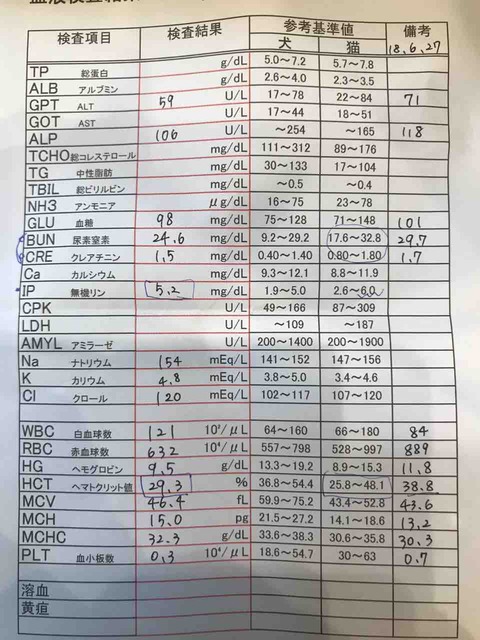 検査項目 検査結果 参考基準値 備考
犬 猫 18.6.27
TP 総蛋白 g/dL 5.0～7.2 5.7～7.8
ALB アルブミン g/dL 2.6～4.0 2.3～3.5
GPT ALT 59 U/L 17～78 22～84 71
GOT AST U/L 17～44 18～51
ALP 106 U/L ～254 ～165 118
TCHO 総コレステロール mg/dL 111～312 89～176
TG 中性脂肪 mg/dL 30～133 17～104
TBIL 総ビリルビン mg/dL ～0.5 ～0.4
NH3 アンモニア μg/dL 16～75 23～78
GLU 血糖 98 mg/dL 75～128 71～148 101
BUN 尿素窒素 24.6 mg/dL 9.2～29.2 17.6～32.8 29.7
CRE クレアチニン 1.5 mg/dL 0.40～1.40 0.80～1.80 1.7
Ca カルシウム mg/dL 9.3～12.1 8.8～11.9
IP 無機リン 5.2 mg/dL 1.9～5.0 2.6～6.0
CPK U/L 49～166 87～309
LDH U/L ～109 ～187
AMYL アミラーゼ U/L 200～1400 200～1900
Na ナトリウム 154 mEq/L 141～152 147～156
K カリウム 4.8 mEq/L 3.8～5.0 3.4～4.6
Cl クロール 120 mEq/L 102～117 107～120
WBC 白血球数 121 10²/μL 64～160 66～180 84
RBC 赤血球数 632 10⁴/μL 557～798 528～997 889
HG ヘモグロビン 9.5 g/dL 13.3～19.2 8.9～15.3 11.8
HCT ヘマトクリット値 29.3 % 36.8～54.4 25.8～48.1 38.8
MCV 46.4 fL 59.9～75.2 43.4～52.8 43.6
MCH 15.0 pg 21.5～27.2 14.1～18.6 13.2
MCHC 32.3 g/dL 33.6～38.3 30.6～35.8 30.3
PLT 血小板数 0.3 10⁴/μL 18.6～54.7 30～63 0.7
溶血
黄疸